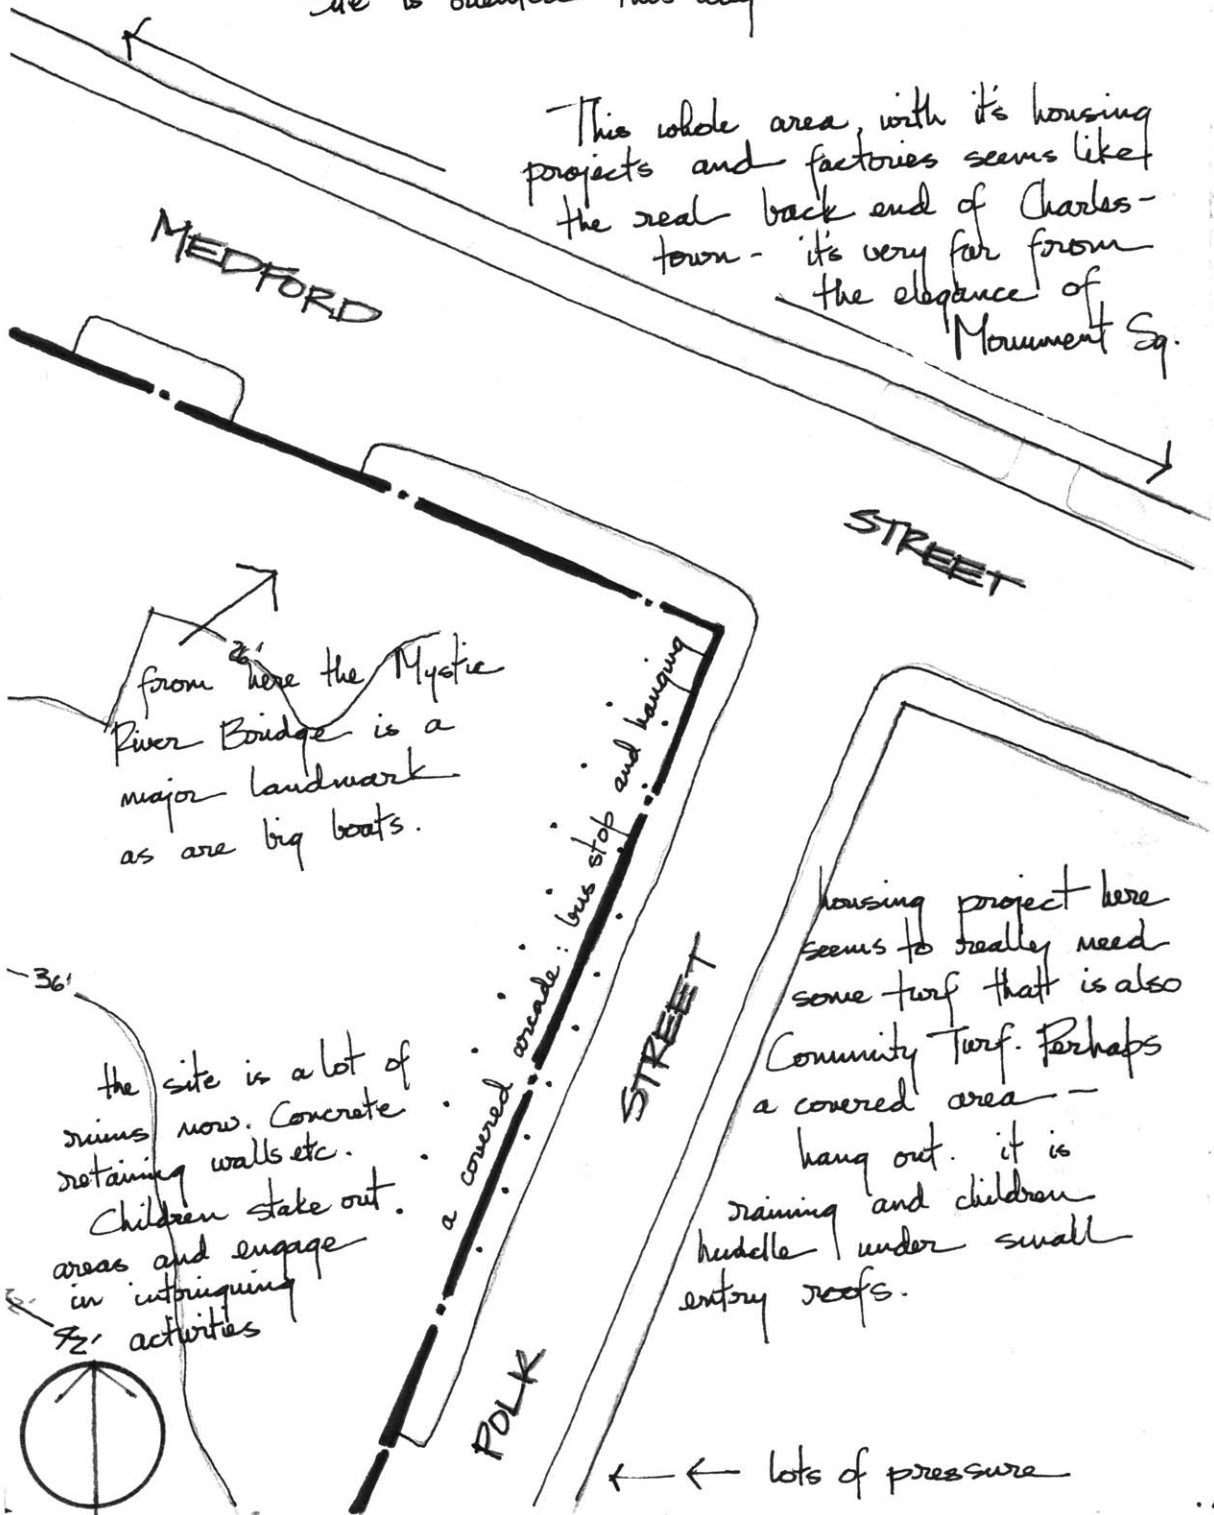 is oriented this way
This whole area, with it's housing
projects and factories seems like
the real back end of Charles-
town - it's very far from
the elegance of
Monument Sq.
MEDFORD
STREET
26'
from here the Mystic
River Bridge is a
major landmark
as are big boats.
a covered arcade: bus stop and hanging
housing project here
seems to really need
some turf thatt is also
Comunity Turf. Perhaps
a covered area -
hang out. it is
raining and children
huddle under small
entry roofs.
36'
the site is a lot of
ruins now. Concrete
retaining walls etc.
Children stake out
areas and engage
in intriguing
activities
POLK
STREET
lots of pressure